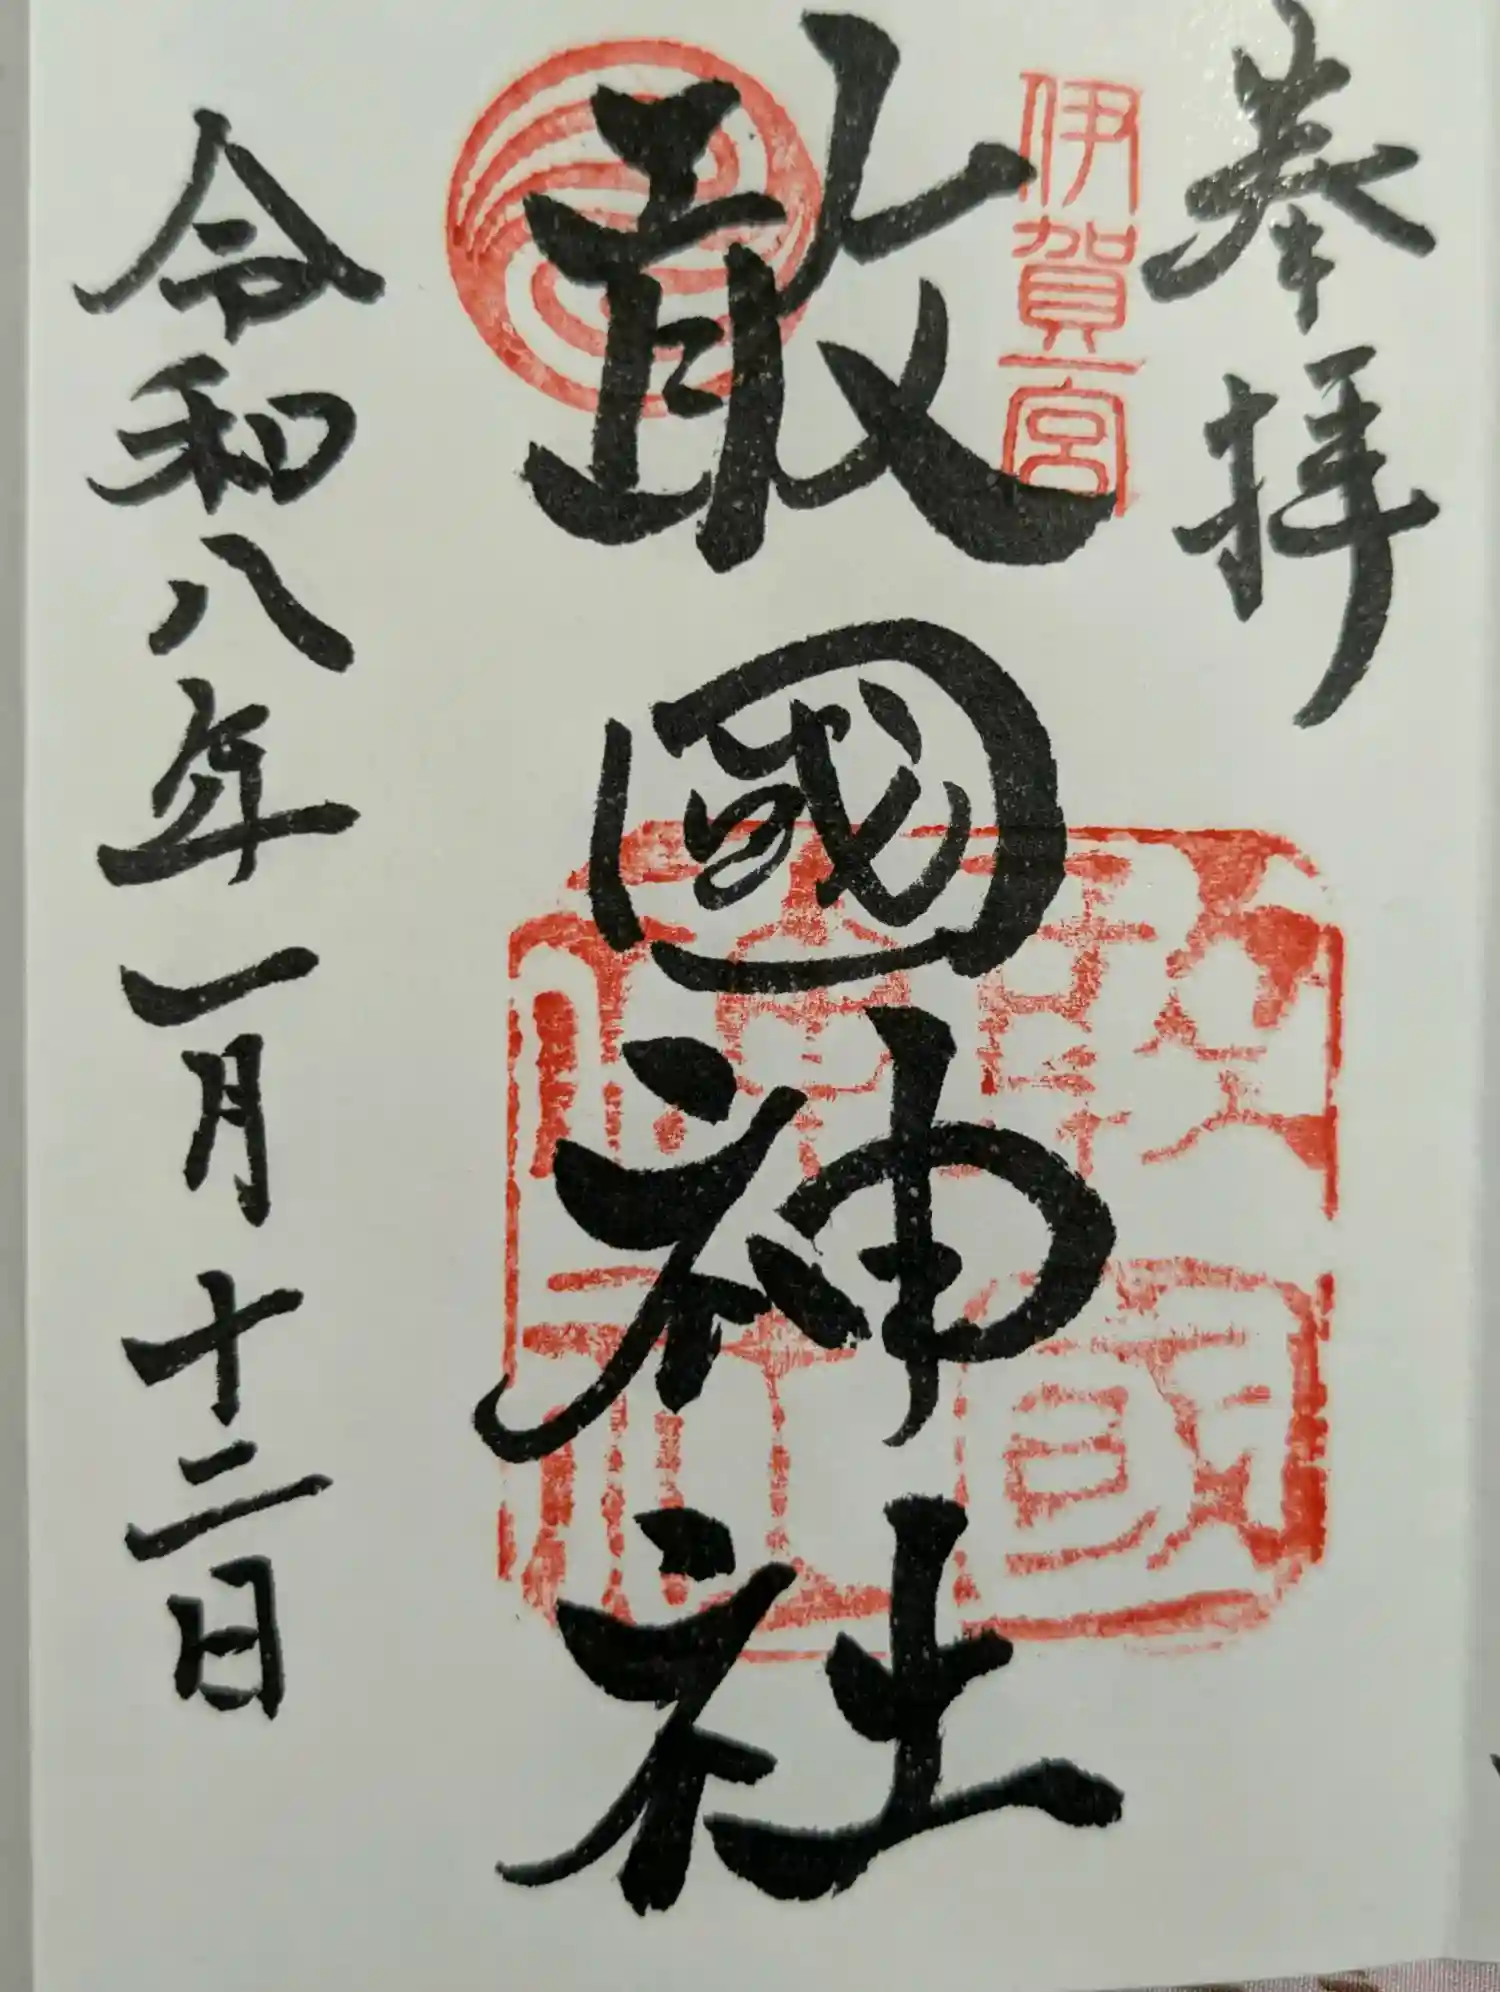 奉拝
伊賀一宮
敢國神社
敢國神社
令和八年一月十二日